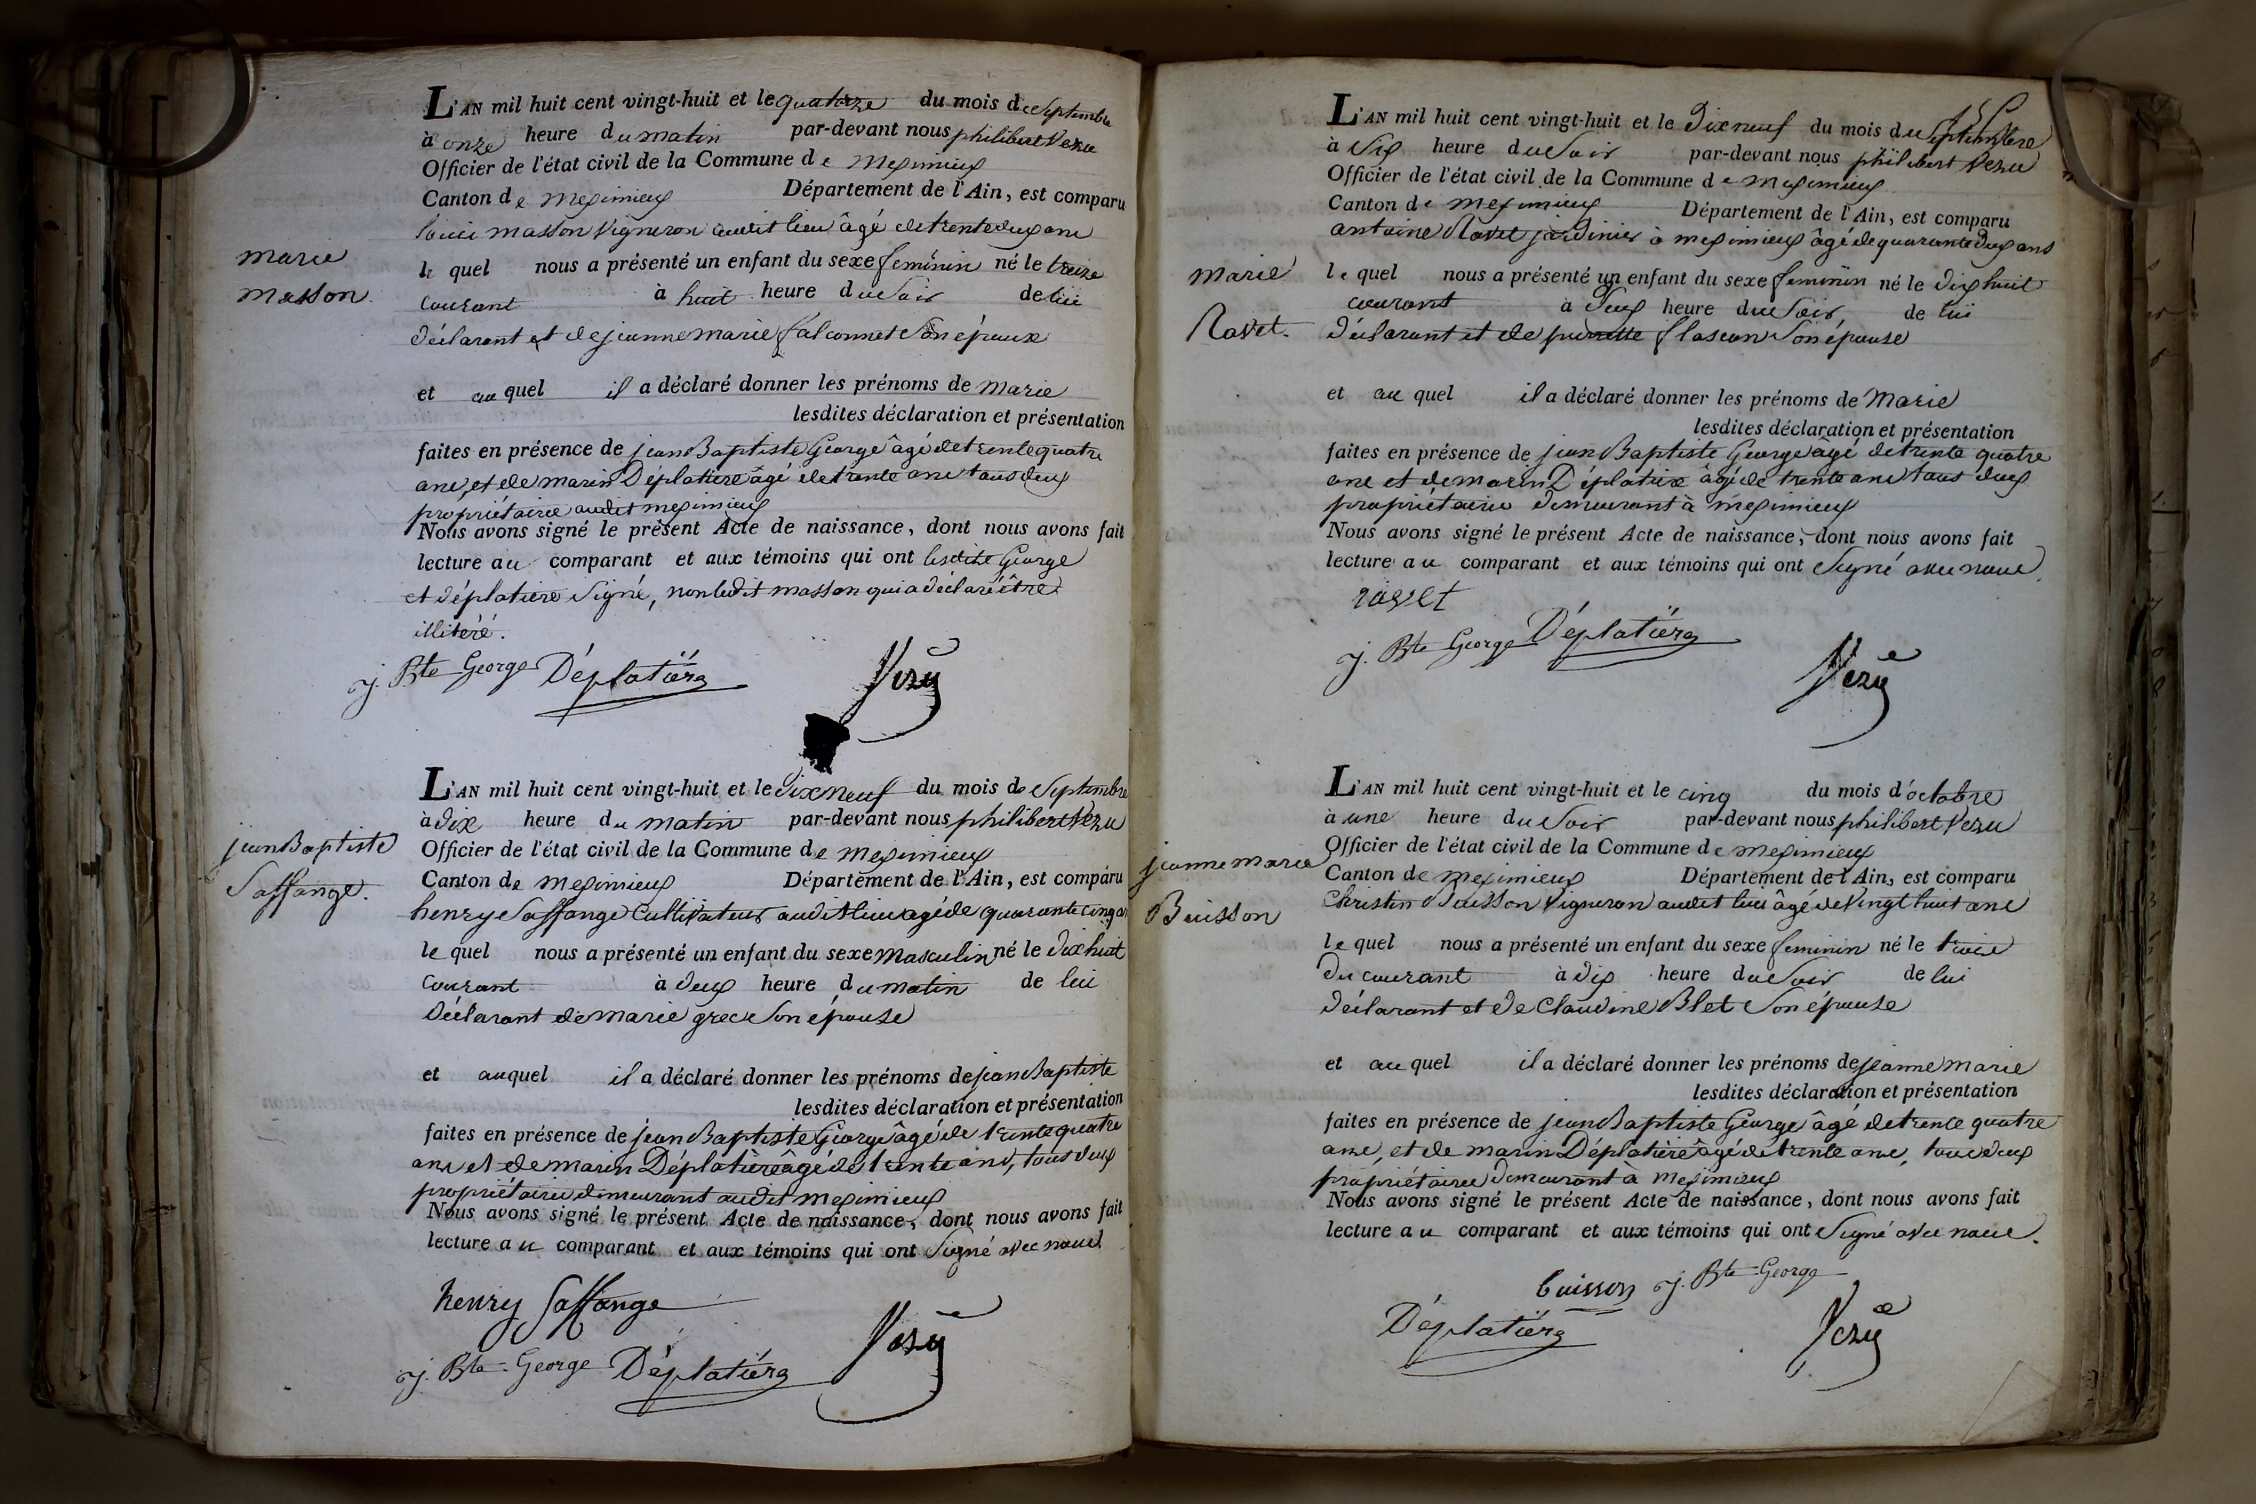 L'AN mil huit cent vingt-huit et le quatorze du mois de Septembre
à onze heure du matin par-devant nous philibert Vezu
Officier de l'état civil de la Commune de Meximieux
Canton de meximieux Département de l'Ain, est comparu
louis masson Vigneron audit lieu âgé de trente deux ans
marie
masson.
le quel nous a présenté un enfant du sexe feminin né le treize
courant à huit heure du Soir de lui
déclarant et de jeanne marie falconnet Son épouse
et au quel il a déclaré donner les prénoms de marie
lesdites déclaration et présentation
faites en présence de jean Baptiste George âgé de trente quatre
ans, et de marin Déplatière âgé de trente ans tous deux
propriétaires audit meximieux
Nous avons signé le présent Acte de naissance, dont nous avons fait
lecture au comparant et aux témoins qui ont lesdits George
et déplatière Signé, non ledit masson qui a déclaré être
illiteré.
j. Bte George Déplatière Vezu
L'AN mil huit cent vingt-huit et le Dix neuf du mois de Septembre
à dix heure du matin par-devant nous philibert Vezu
jean Baptiste
Saffange.
Officier de l'état civil de la Commune de meximieux
Canton de meximieux Département de l'Ain, est comparu
henry Saffange Cultivateur audit lieu agé de quarante cinq
le quel nous a présenté un enfant du sexe masculin né le Dix huit
courant à deux heure du matin de lui
Déclarant de marie grec Son épouse
et auquel il a déclaré donner les prénoms de jean Baptiste
lesdites déclaration et présentation
faites en présence de jean Baptiste George âgé de trente quatre
ans et de marin Déplatière âgé de trente ans, tous deux
propriétaires demeurant audit meximieux
Nous avons signé le présent Acte de naissance, dont nous avons fait
lecture au comparant et aux témoins qui ont Signé avec nous
henry Saffange
j. Bte George Déplatière Vezu
L'AN mil huit cent vingt-huit et le Dix neuf du mois de Septembre
à Six heure du Soir par-devant nous philibert Vezu
Officier de l'état civil de la Commune de meximieux
Canton de meximieux Département de l'Ain, est comparu
antoine Ravet jardinier à meximieux âgé de quarante deux ans
marie
Ravet.
le quel nous a présenté un enfant du sexe feminin né le dix huit
courant à Deux heure du Soir de lui
déclarant et de pierrette flascon Son épouse
et au quel il a déclaré donner les prénoms de Marie
lesdites déclaration et présentation
faites en présence de jean Baptiste George âgé de trente quatre
ans et de marin Déplatière âgé de trente ans tous deux
propriétaires demeurant à meximieux
Nous avons signé le présent Acte de naissance, dont nous avons fait
lecture au comparant et aux témoins qui ont Signé avec nous.
ravet
j. Bte George Déplatière
Vezu
L'AN mil huit cent vingt-huit et le cinq du mois d'octobre
à une heure du Soir par-devant nous philibert Vezu
Officier de l'état civil de la Commune de meximieux
jeanne marie
Buisson
Canton de meximieux Département de l'Ain, est comparu
Christin Buisson Vigneron audit lieu âgé de Vingt huit ans
le quel nous a présenté un enfant du sexe feminin né le trois
du courant à dix heure du Soir de lui
déclarant et de Claudine Blet Son épouse
et au quel il a déclaré donner les prénoms de jeanne marie
lesdites déclaration et présentation
faites en présence de jean Baptiste George âgé de trente quatre
ans, et de marin Déplatière âgé de trente ans, tous deux
propriétaires demeurant à meximieux
Nous avons signé le présent Acte de naissance, dont nous avons fait
lecture au comparant et aux témoins qui ont Signé avec nous.
buisson j. Bte George
Déplatière Vezu